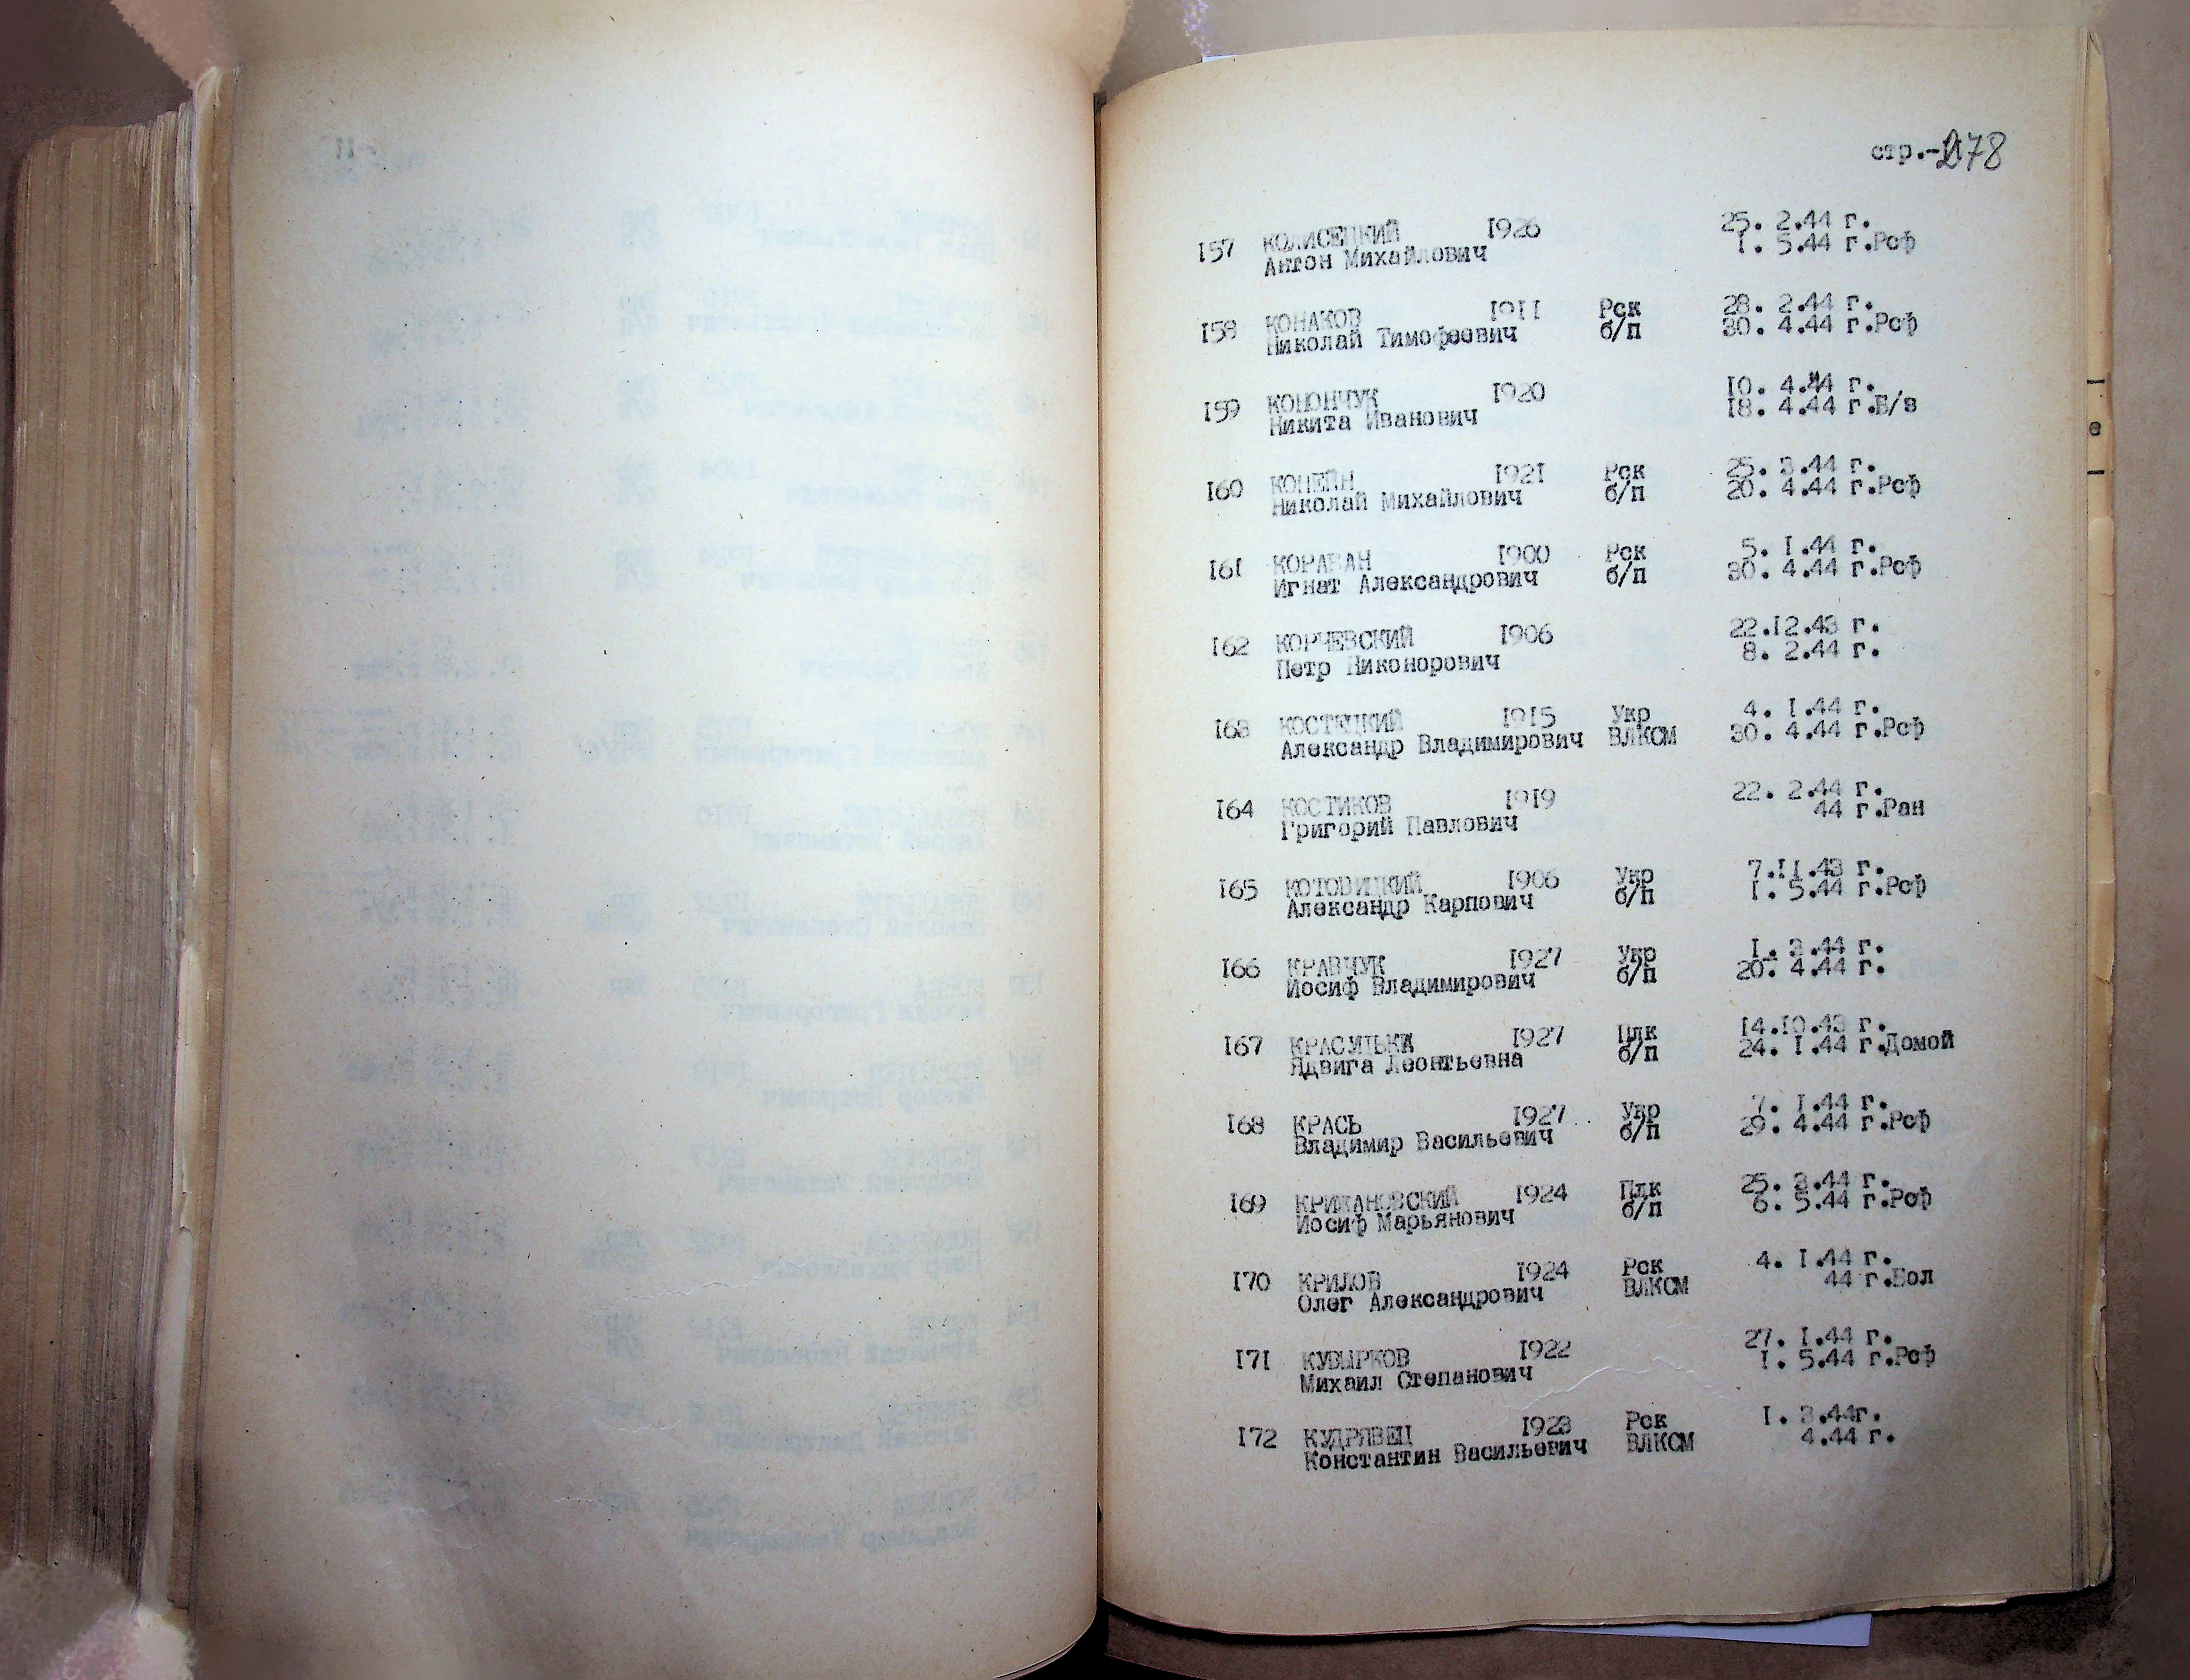 стр.-278
157 КОЛИСЕЦКИЙ 1926 25. 2.44 г.
Антон Михайлович 1. 5.44 г.Рсф
158 КОНАКОВ 1911 Рск 28. 2.44 г.
Николай Тимофеевич б/п 30. 4.44 г.Рсф
159 КОНОНЧУК 1920 10. 4.44 г.
Никита Иванович 18. 4.44 г.Б/в
160 1921 Рск 25. 3.44 г.
Николай Михайлович б/п 20. 4.44 г.Рсф
161 КОРАБАН 1900 Рск 5. 1.44 г.
Игнат Александрович б/п 30. 4.44 г.Рсф
162 КОРЧЕВСКИЙ 1906 22.12.43 г.
Петр Никонорович 8. 2.44 г.
163 КОСТЕЦКИЙ 1915 Укр 4. 1.44 г.
Александр Владимирович ВЛКСМ 30. 4.44 г.Рсф
164 КОСТИКОВ 1919 22. 2.44 г.
Григорий Павлович 44 г.Ран
165 КОТОВИЦКИЙ 1906 Укр 7.11.43 г.
Александр Карпович б/п 1. 5.44 г.Рсф
166 КРАВЧУК 1927 Укр 1. 3.44 г.
Иосиф Владимирович б/п 20. 4.44 г.
167 1927 Плк 14.10.43 г.
Ядвига Леонтьевна б/п 24. 1.44 г.Домой
168 КРАСЬ 1927 Укр 7. 1.44 г.
Владимир Васильевич б/п 29. 4.44 г.Рсф
169 КРИЖАНОВСКИЙ 1924 Плк 25. 3.44 г.
Иосиф Марьянович б/п 6. 5.44 г.Рсф
170 КРИЛОВ 1924 Рск 4. 1.44 г.
Олег Александрович ВЛКСМ 44 г.Бол
171 КУВЫРКОВ 1922 27. 1.44 г.
Михаил Степанович 1. 5.44 г.Рсф
172 КУДРЯВЕЦ 1923 Рск 1. 3.44г.
Константин Васильевич ВЛКСМ 4.44 г.